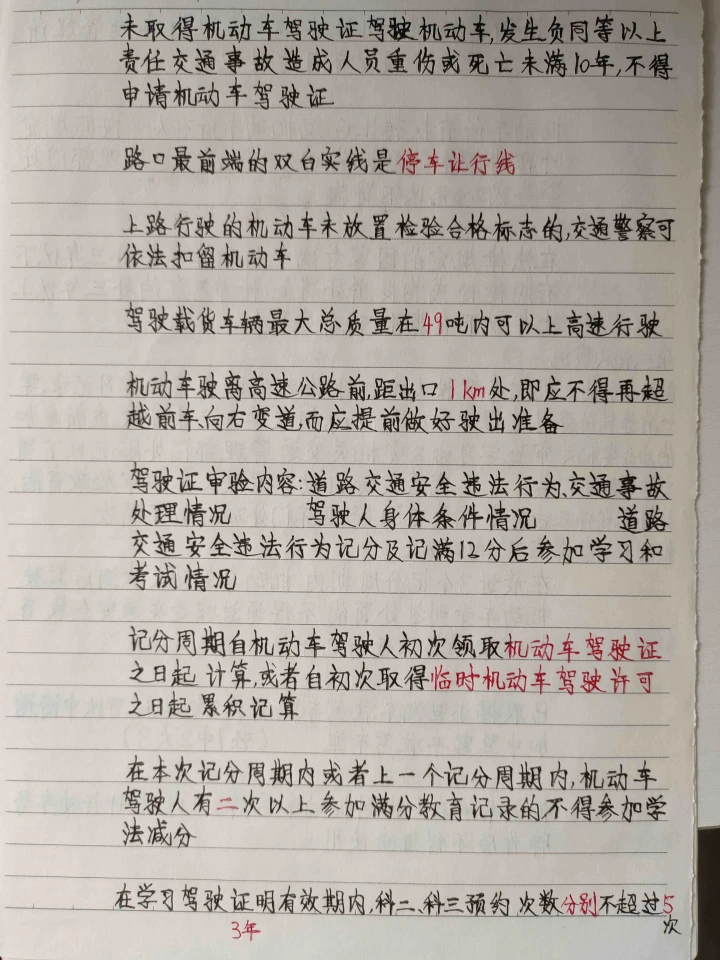 未取得机动车驾驶证驾驶机动车,发生负同等以上
责任交通事故造成人员重伤或死亡未满10年,不得
申请机动车驾驶证
路口最前端的双白实线是停车让行线
上路行驶的机动车未放置检验合格标志的,交通警察可
依法扣留机动车
驾驶载货车辆最大总质量在49吨内可以上高速行驶
机动车驶离高速公路前,距出口1km处,即应不得再超
越前车,向右变道,而应提前做好驶出准备
驾驶证审验内容:道路交通安全违法行为,交通事故
处理情况 驾驶人身体条件情况 道路
交通安全违法行为记分及记满12分后参加学习和
考试情况
记分周期自机动车驾驶人初次领取机动车驾驶证
之日起 计算,或者自初次取得临时机动车驾驶许可
之日起 累积记算
在本次记分周期内或者上一个记分周期内,机动车
驾驶人有二次以上参加满分教育记录的,不得参加学
法减分
在学习驾驶证明有效期内,科二、科三预约次数分别不超过5
次
3年